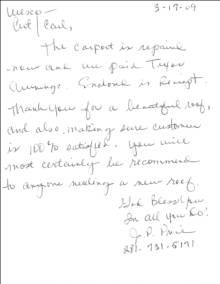 3-17-09
Carl,
The carport is repaired
now and we paid Tyson
Awnings. Enclosed is Receipt.
Thank you for a beautiful roof,
and also making sure customer
is 100% satisfied. You will
most certainly be recommend
to anyone needing a new roof.
God Bless You
In all you Do!
J. P.
281-731-5171